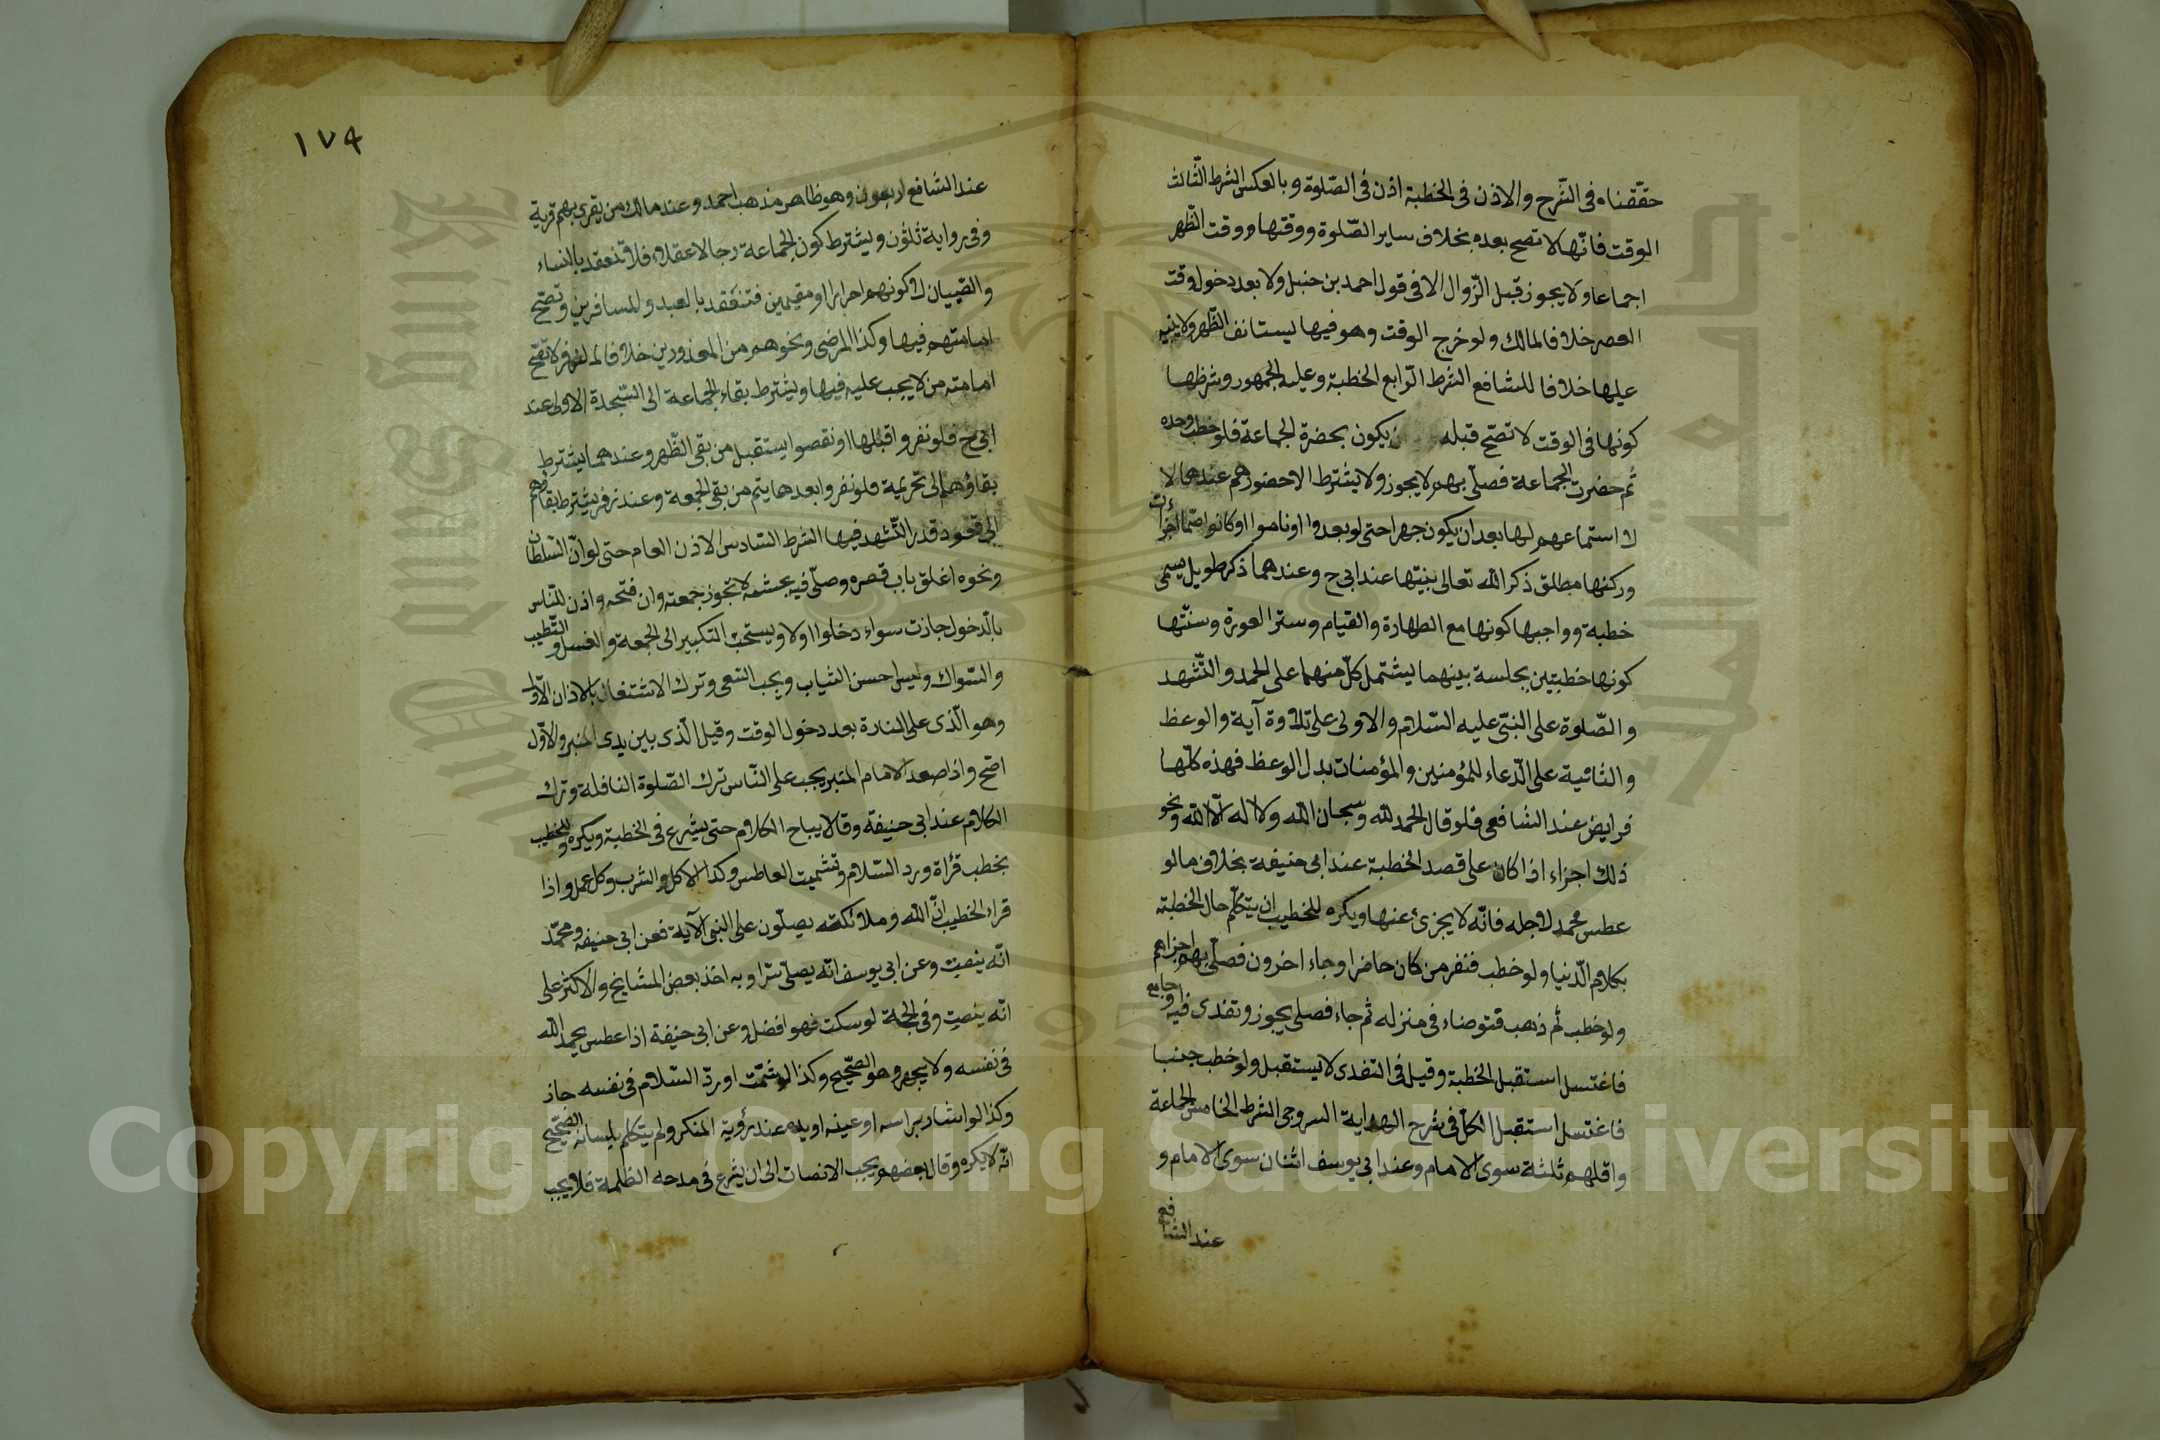 حققناه فى الشرح والاذن فى الخطبة اذن فى الصلوة وبالعكس الشرط الثالث
الوقت فانها لا تصح بعده بخلاف ساير الصلوة ووقتها ووقت الظهر
اجماعا ولا يجوز قبل الزوال الا فى قول احمد بن حنبل ولا بعد دخول وقت
العصر خلافا لمالك ولو خرج الوقت وهو فيها يستانف الظهر ولا يبنيه
عليها خلافا للشافع الشرط الرابع الخطبة وعليه الجمهور وشرطها
كونها فى الوقت لا تصح قبله يكون بحضرة الجماعة فلو خطب وحده
ثم حضرت الجماعة فصلى بهم لا يجوز ولا يشترط الا حضورهم عندهما لا
استماعهم لها بعد ان يكون جهرا حتى لو بعدوا او ناموا او كانوا صما اجزأت
وركنها مطلق ذكر الله تعالى بنيتها عند ابى ح وعندهما ذكر طويل يسمى
خطبة وواجبها كونها مع الطهارة والقيام وستر العورة وسنتها
كونها خطبتين بجلسة بينهما يشتمل كل منهما على الحمد والتشهد
والصلوة على النبى عليه السلام والاولى على تلاوة آية والوعظ
والثانية على الدعاء للمؤمنين والمؤمنات بدل الوعظ فهذه كلها
فرايض عند الشافعى فلو قال الحمد لله وسبحان الله ولا اله الا الله ونحو
ذلك اجزاء اذا كان على قصد الخطبة عند ابى حنيفة بخلاف ما لو
عطس فحمد لاجله فانه لا يجزئ عنها ويكره للخطيب ان يتكلم حال الخطبة
بكلام الدنيا ولو خطب فنفر من كان حاضرا وجاء اخرون فصلى بهم اجزاهم
ولو خطب ثم ذهب فتوضاء فى منزله ثم جاء فصلى يجوز وتغدى فيه او جامع
فاغتسل استقبل الخطبة وقيل فى التغدى لا يستقبل ولو خطب جنبا
فاغتسل استقبل الكل فى شرح الهداية السروجى الشرط الخامس الجماعة
واقلهم ثلثة سوى الامام وعند ابى يوسف اثنان سوى الامام و
عند الشافع
١٧٩
عند الشافع اربعون وهو ظاهر مذهب احمد وعند مالك من يقرى بهم قرية
وفى رواية ثلثون ويشترط كون الجماعة رجالا عقلاء فلا تنعقد بالنساء
والصبيان لا كونهم احرارا او مقيمين فتنعقد بالعبد والمسافرين وتصح
امامتهم فيها وكذا المرضى ونحوهم من المعذورين خلافا لزفر لا تصح
امامته من لا يجب عليه فيها ويشترط بقاء الجماعة الى السجدة الاولى عند
ابى ح فلو نفروا قبلها او نقصوا يستقبل من بقى الظهر وعندهما يشترط
بقاؤهم الى تحريمة فلو نفروا بعدها يتم من بقى الجمعة وعند زفر يشترط بقاؤهم
الى قعود قدر التشهد فيها الشرط السادس الاذن العام حتى لو ان السلطان
ونحوه اغلق باب قصره وصلى فيه بحشمه لا تجوز جمعته وان فتحه واذن للناس
بالدخول جازت سواء دخلوا اولا ويستحب التكبير الى الجمعة والغسل والتطيب
والسواك ولبس احسن الثياب ويجب السعى وترك الاشتغال بالاذان الاول
وهو الذى على المنارة بعد دخول الوقت وقيل الذى بين يدى المنبر والاول
اصح واذا صعد الامام المنبر يجب على الناس ترك الصلوة النافلة وترك
الكلام عند ابى حنيفة وقالا يباح الكلام حتى يشرع فى الخطبة ويكره والخطيب
يخطب قرأة ورد السلام وتشميت العاطس وكذا الاكل والشرب وكل عمل واذا
قراء الخطيب ان الله وملائكته يصلون على النبى الآية فعن ابى حنيفة ومحمد
انه ينصت وعن ابى يوسف انه يصلى سرا وبه اخذ بعض المشايخ والاكثر على
انه ينصت وفى الحجة لو سكت فهو افضل وعن ابى حنيفة اذا عطس يحمد الله
فى نفسه ولا يجهر وهو الصحيح وكذا لو شمت او رد السلام فى نفسه جاز
وكذا لو اشار براسه او عينه او يده عند رؤية المنكر ولم يتكلم بلسانه الصحيح
انه لا يكره وقال بعضهم يجب الانصات الى ان يشرع فى مدحه الظلمة فلا يجب
Copyright © King Saud University